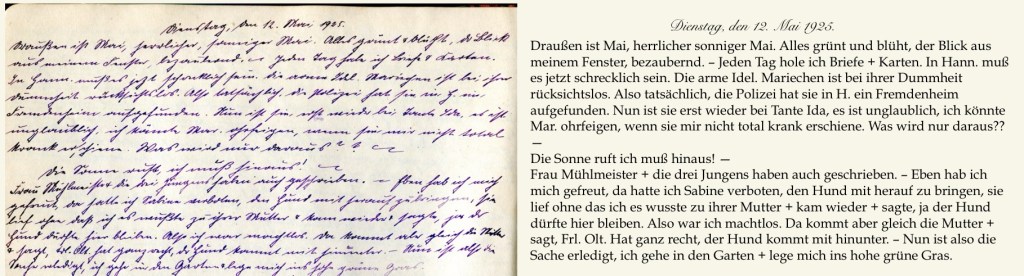 Dienstag, den 12. Mai 1925.
Draußen ist Mai, herrlicher, sonniger Mai. Alles grünt + blüht, der Blick
aus meinem Fenster, bezaubernd. – Jeden Tag hole ich Briefe + Karten.
In Hann. muß es jetzt schrecklich sein. Die arme Idl. Mariechen ist bei ihrer
Dummheit rücksichtslos. Also tatsächlich, die Polizei hat sie in H. ein
Fremdenheim aufgefunden. Nun ist sie erst wieder bei Tante Ida, es ist
unglaublich, ich könnte Mar. ohrfeigen, wenn sie mir nicht total
krank erschiene. Was wird nur daraus? ? —
Die Sonne ruft, ich muß hinaus! —
Frau Mühlmeister + die drei Jungens haben auch geschrieben. – Eben hab ich mich
gefreut, da hatte ich Sabine verboten, den Hund mit herauf zu bringen, sie
lief ohne daß ich es wußte zu ihrer Mutter + kam wieder + sagte, ja der
Hund dürfte hier bleiben. Also war ich machtlos. Da kommt aber gleich die Mutter
+ sagt, Frl. Olt. hat ganz recht, der Hund kommt mit hinunter. – Nun ist also die
Sache erledigt, ich gehe in den Garten + lege mich ins hohe grüne Gras.
Dienstag, den 12. Mai 1925.
Draußen ist Mai, herrlicher sonniger Mai. Alles grünt und blüht, der Blick aus
meinem Fenster, bezaubernd. – Jeden Tag hole ich Briefe + Karten. In Hann. muß
es jetzt schrecklich sein. Die arme Idel. Mariechen ist bei ihrer Dummheit
rücksichtslos. Also tatsächlich, die Polizei hat sie in H. ein Fremdenheim
aufgefunden. Nun ist sie erst wieder bei Tante Ida, es ist unglaublich, ich könnte
Mar. ohrfeigen, wenn sie mir nicht total krank erschiene. Was wird nur daraus??
—
Die Sonne ruft ich muß hinaus! —
Frau Mühlmeister + die drei Jungens haben auch geschrieben. – Eben hab ich
mich gefreut, da hatte ich Sabine verboten, den Hund mit herauf zu bringen, sie
lief ohne das ich es wusste zu ihrer Mutter + kam wieder + sagte, ja der Hund
dürfte hier bleiben. Also war ich machtlos. Da kommt aber gleich die Mutter +
sagt, Frl. Olt. Hat ganz recht, der Hund kommt mit hinunter. – Nun ist also die
Sache erledigt, ich gehe in den Garten + lege mich ins hohe grüne Gras.